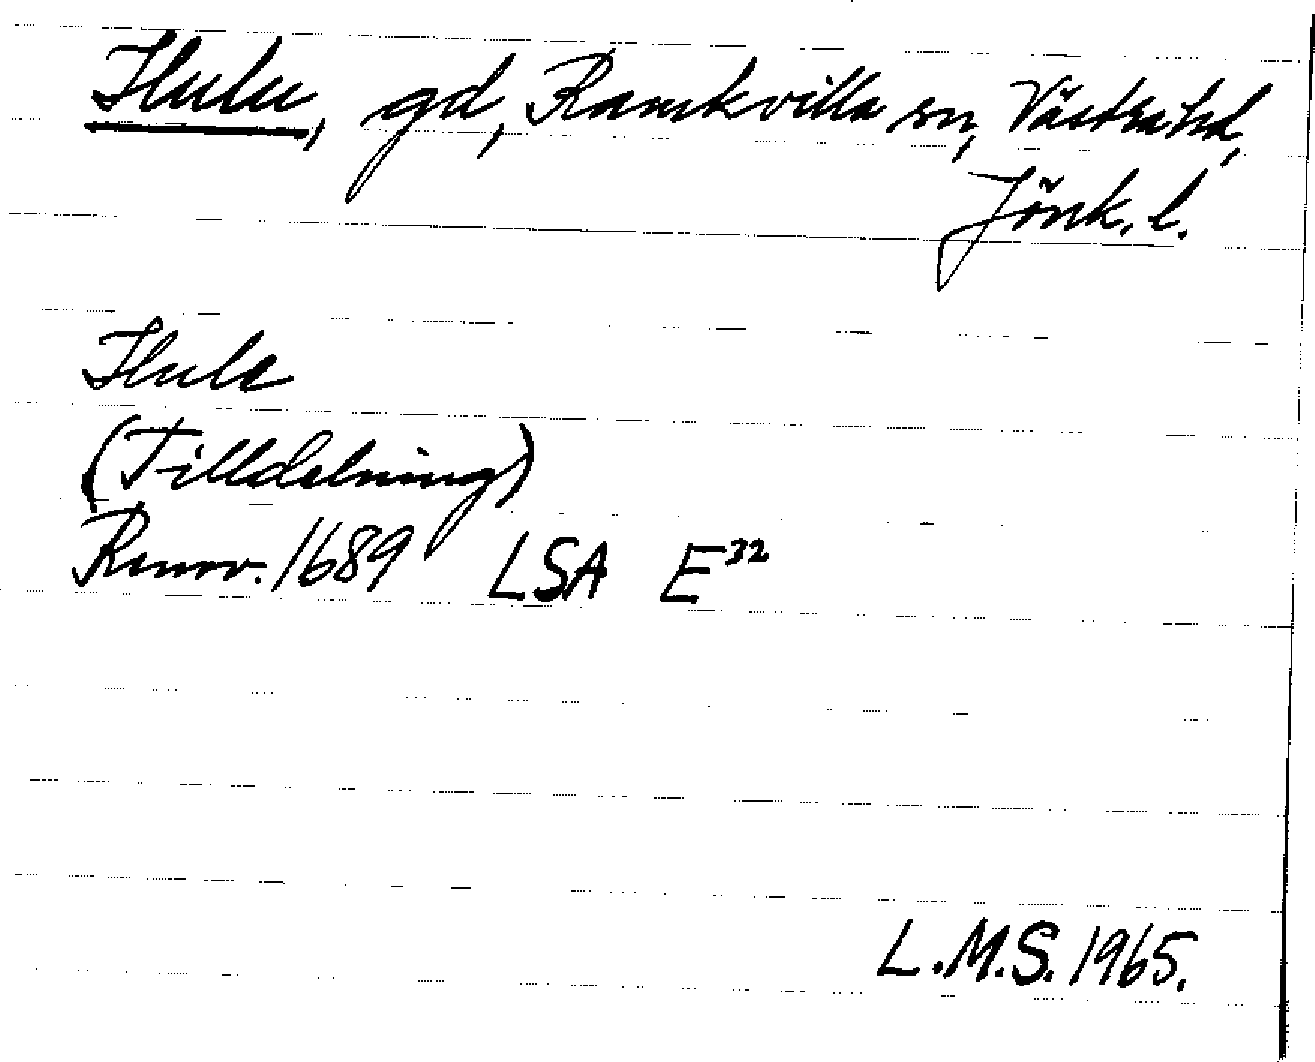 Hulu, gd, Ramkvilla sn, Västra hd,
Jönk. l.
Hule
(Tilldelning)
Renov. 1689 LSA E³²
L.M.S. 1965.